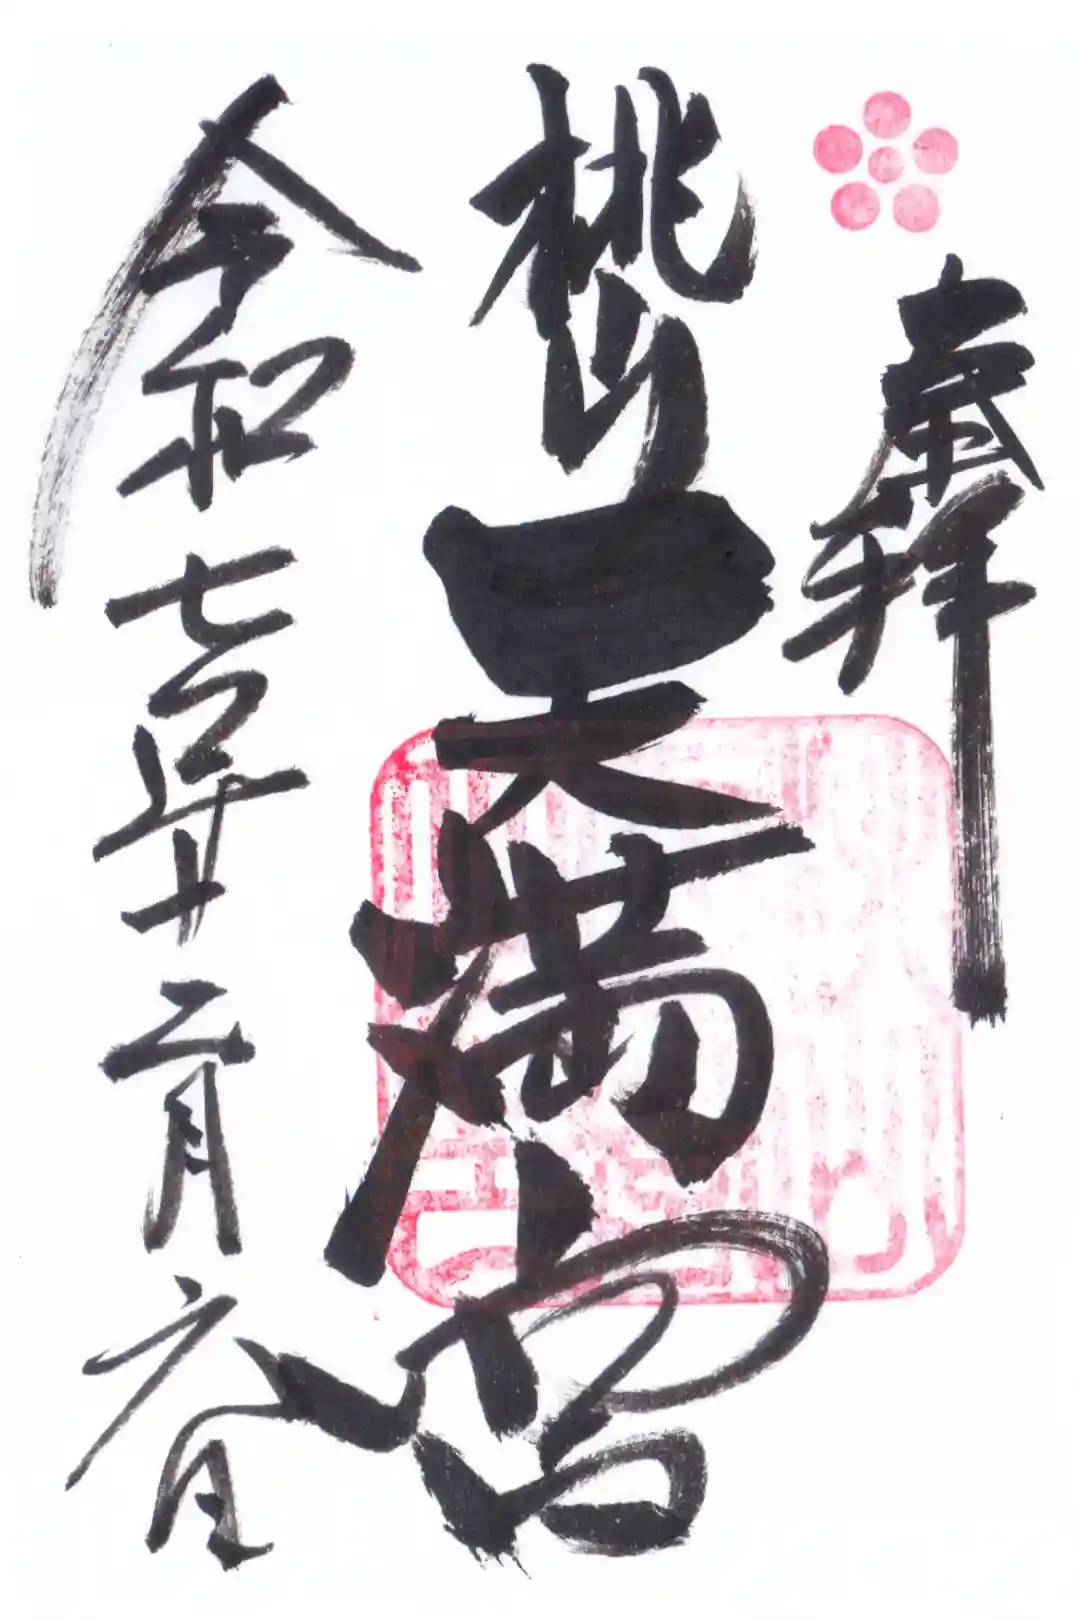 奉拝
桃山天満宮
令和七年十二月六日